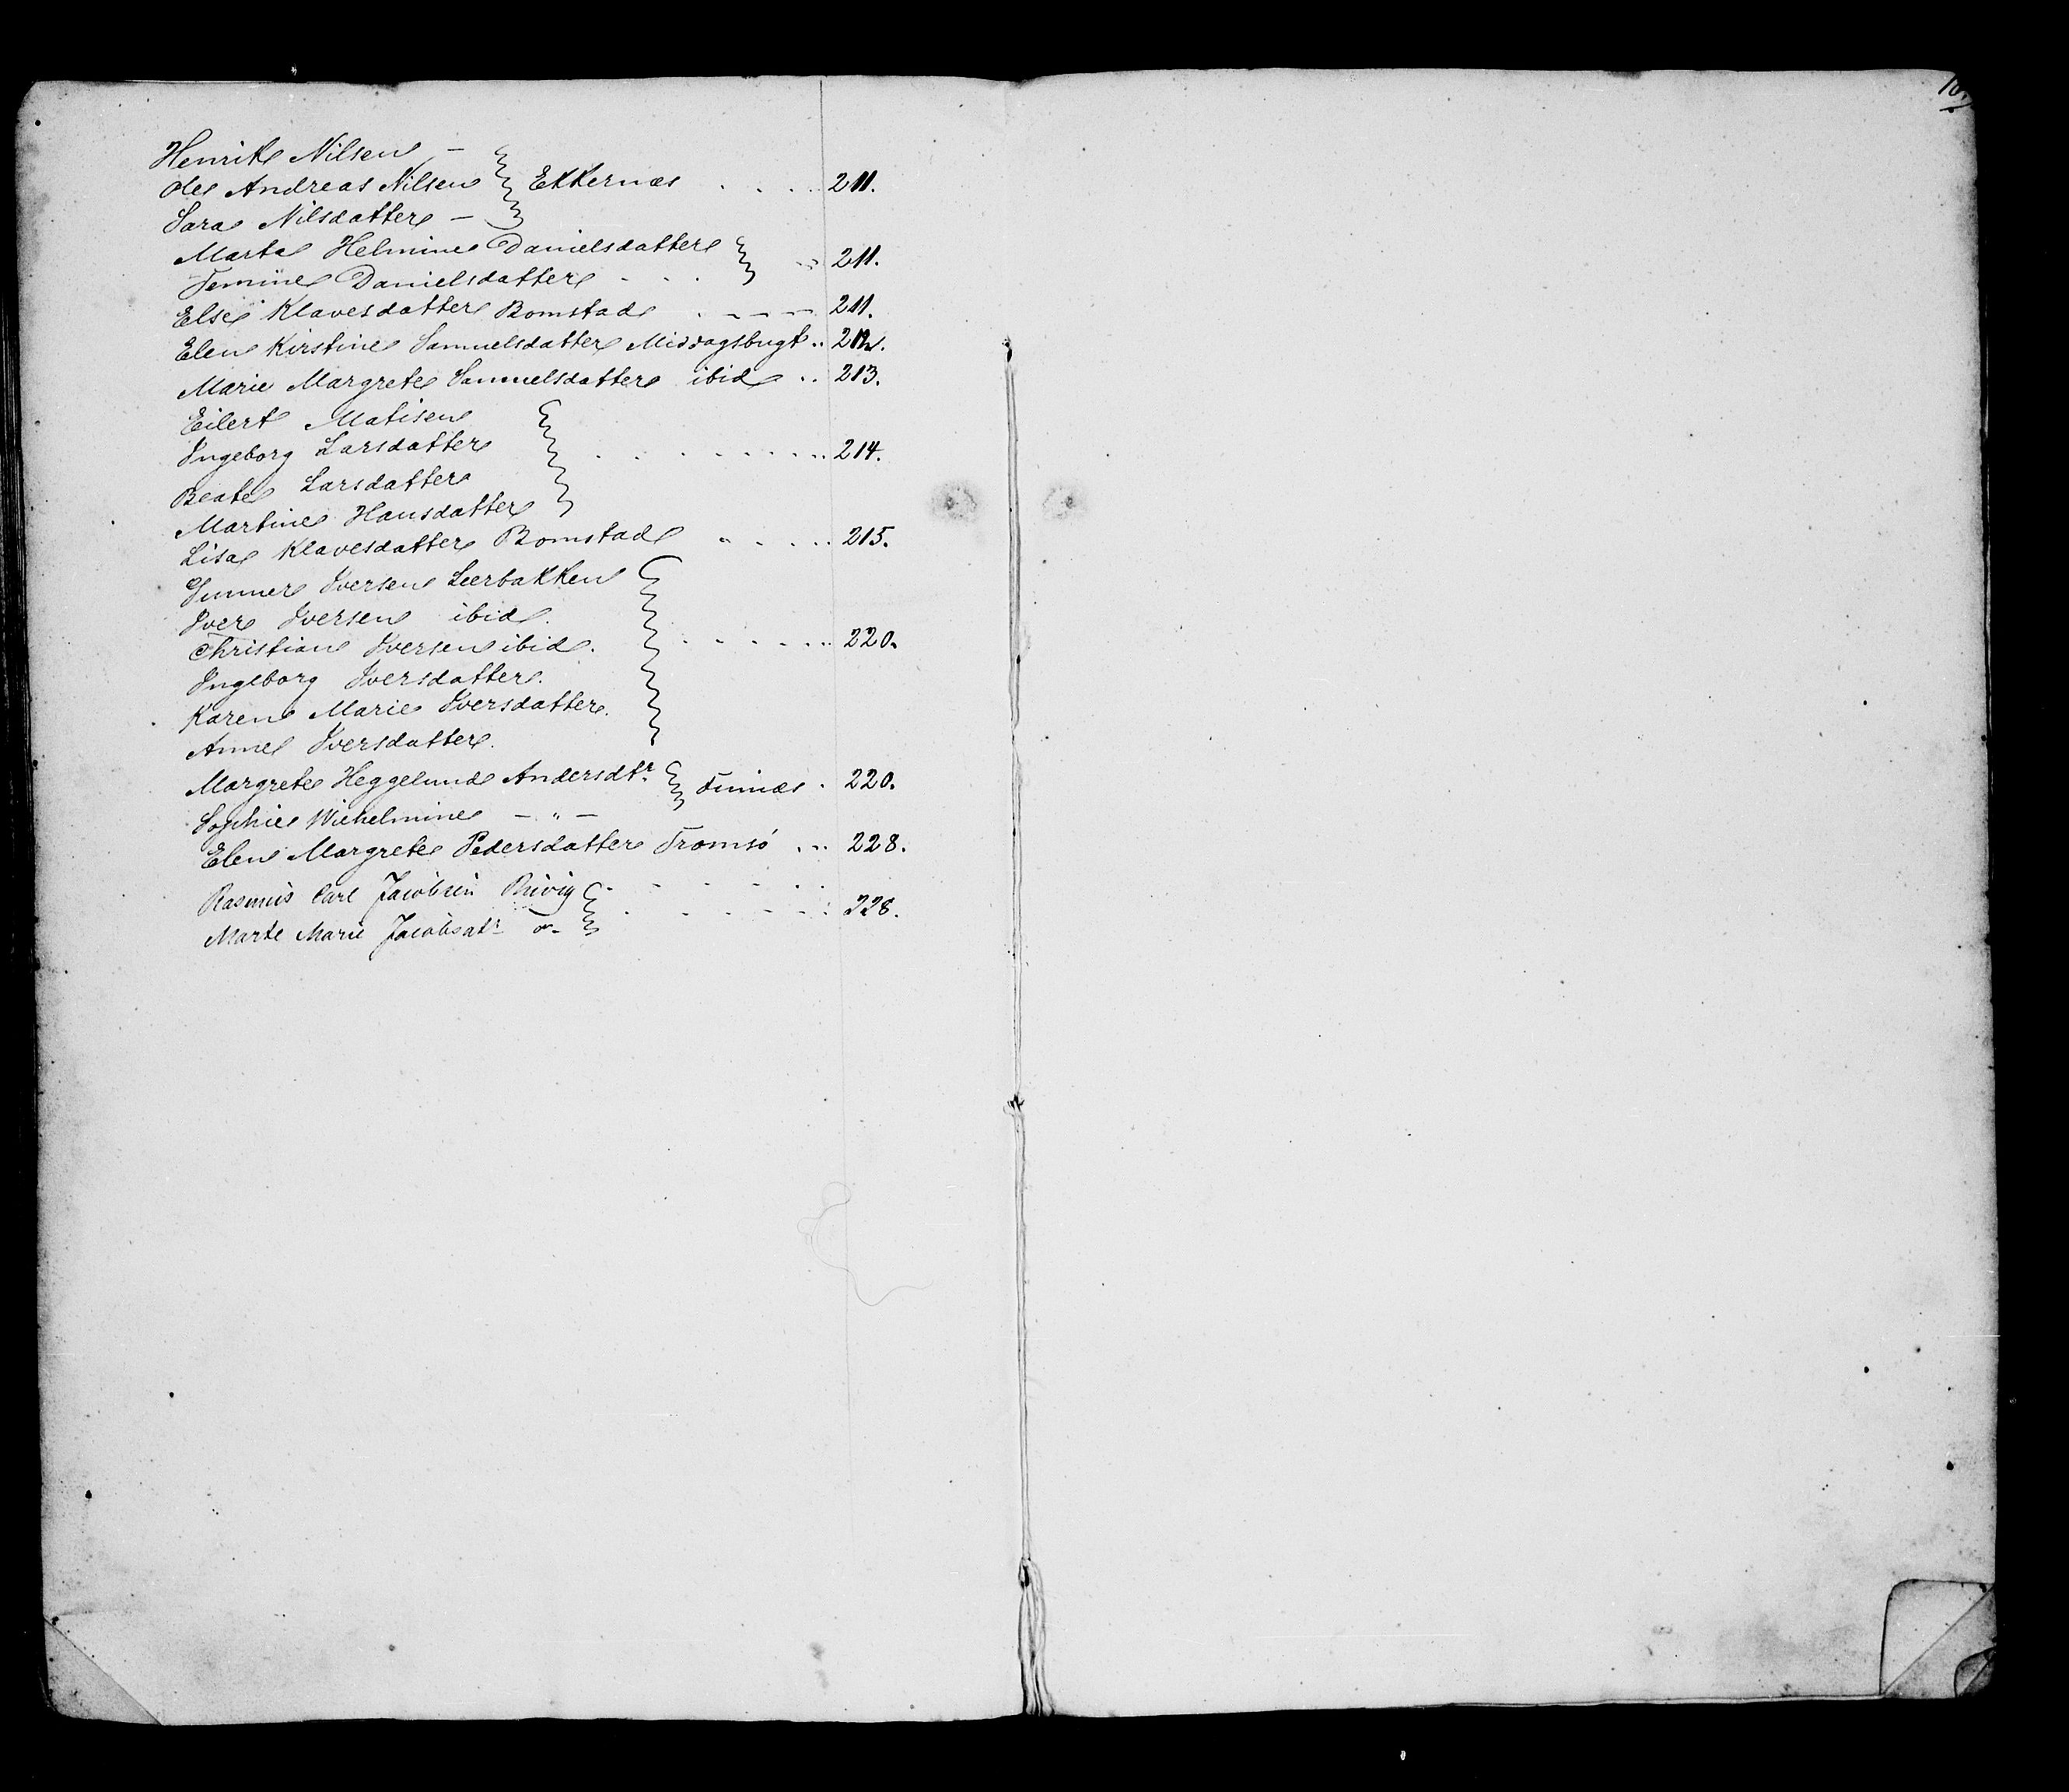 Henrik Nilsen —
Ole Andreas Nilsen Ekkernæs . . . . 211.
Sara Nilsdatter —
Marta Helmine Danielsdatter
Jemine Danielsdatter . . . 211.
Else Klavesdatter Bomstad . — — — 211.
Elen Kirstine Samuelsdatter Middagsbugt .. 212.
Marie Margrete Samuelsdatter ibid .. 213.
Eilert Matisen
Ingeborg Larsdatter . . . . . . . . 214.
Beate Larsdatter
Martine Hansdatter
Lisa Klavesdatter Bomstad " . . . . 215.
Gunner Iversen Leerbakken
Iver Iversen ibid.
Christian Iversen ibid. . . . . . . 220.
Ingeborg Iversdatter.
Karen Marie Iversdatter.
Anne Iversdatter.
Margrete Heggelund Andersdtr. Finnæs . 220.
Sophie Wilhelmine — " —
Elen Margrete Pedersdatter Tromsø ... 228.
Rasmus Carl Jacobsen . . . . . .
Marte Marie Jacobsdtr . . . . . . 228.